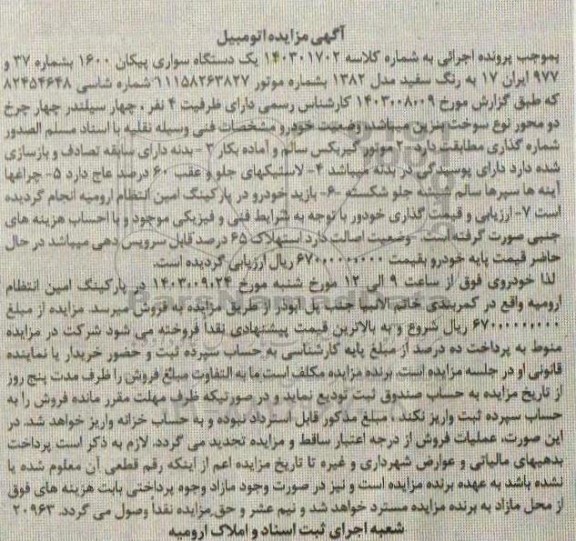 آگهی مزایده اتومبیل
بموجب پرونده اجرائی به شماره کلاسه ۱۴۰۳۰۱۷۰۲ یک دستگاه سواری پیکان ۱۶۰۰ بشماره ۳۷ و
۹۷۷ ایران ۱۷ به رنگ سفید مدل ۱۳۸۲ بشماره موتور ۱۱۱۵۸۲۶۳۸۲۷ شماره شاسی ۸۲۴۵۴۶۴۸
که طبق گزارش مورخ ۱۴۰۳۰۰۸۰۰۹ کارشناس رسمی دارای ظرفیت ۴ نفر ، چهار سیلندر چهار چرخ
دو محور نوع سوخت بنزین میباشد وضعیت خودرو مشخصات فنی وسیله نقلیه با اسناد مسلم الصدور
شماره گذاری مطابقت دارد ۲- موتور گیربکس سالم و آماده بکار ۳ - بدنه دارای سابقه تصادف و بازسازی
شده دارای پوسیدگی در بدنه میباشد ۴- لاستیکهای جلو و عقب ۶۰ درصد عاج دارد ۵- چراغها
آینه ها سپرها سالم شیشه جلو شکسته -۶- بازید خودرو در پارکینگ امین انتظام ارومیه انجام گردیده
است ۷- ارزیابی و قیمت گذاری خودور با توجه به شرایط فنی و فیزیکی موجود و با احساب هزینه های
جنبی صورت گرفته است - وضعیت اصالت دارد استهلاک ۶۵ درصد قابل سرویس دهی میباشد در حال
حاضر قیمت پایه خودرو بقیمت ۶۷۰۰۰۰۰۰۰۰ ریال ارزیابی گردیده است.
لذا خودروی فوق از ساعت ۹ الی ۱۲ مورخ شنبه مورخ ۱۴۰۳۰۰۹۰۲۴ در پارکینگ امین انتظام
ارومیه واقع در کمربندی خاتم الانبیا جنب پل ابوذر از طریق مزایده به فروش میرسد. مزایده از مبلغ
۶۷۰۰۰۰۰۰۰۰ ریال شروع و به بالاترین قیمت پیشنهادی نقداً فروخته می شود شرکت در مزایده
منوط به پرداخت ده درصد از مبلغ پایه کارشناسی به حساب سپرده ثبت و حضور خریدار یا نماینده
قانونی او در جلسه مزایده است. برنده مزایده مکلف است ما به التفاوت مبلغ فروش را ظرف مدت پنج روز
از تاریخ مزایده به حساب صندوق ثبت تودیع نماید و در صورتیکه ظرف مهلت مقرر مانده فروش را به
حساب سپرده ثبت واریز نکند ، مبلغ مذکور قابل استرداد نبوده و به حساب خزانه واریز خواهد شد. در
این صورت، عملیات فروش از درجه اعتبار ساقط و مزایده تجدید می گردد. لازم به ذکر است پرداخت
بدهیهای مالیاتی و عوارض شهرداری و غیره تا تاریخ مزایده اعم از اینکه رقم قطعی آن معلوم شده یا
نشده باشد به عهده برنده مزایده است و نیز در صورت وجود مازاد وجوه پرداختی بابت هزینه های فوق
از محل مازاد به برنده مزایده مسترد خواهد شد و نیم عشر و حق مزایده نقداً وصول می گردد. ۲۰۹۶۳
شعبه اجرای ثبت اسناد و املاک ارومیه